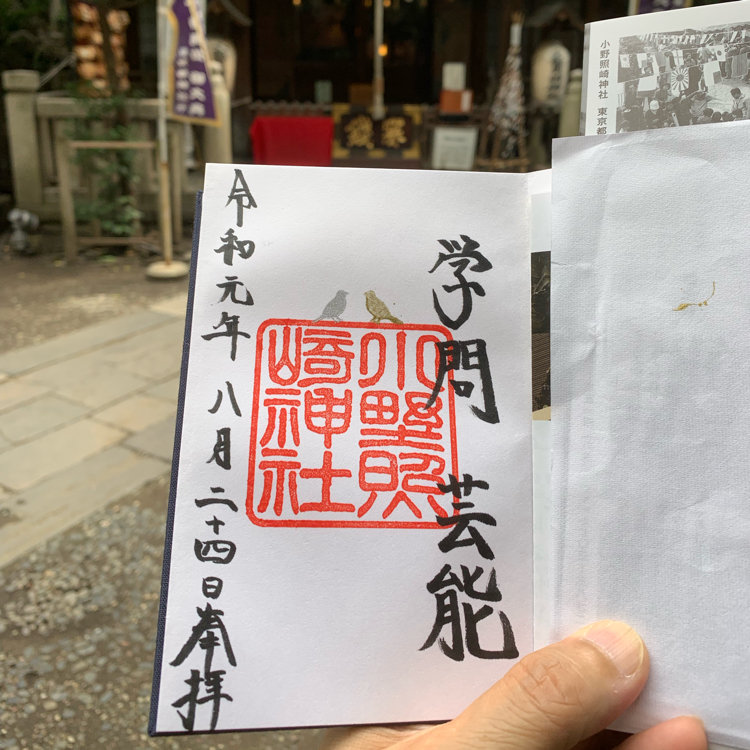 小野照崎神社 東京都
学問 芸能
小野照
崎神社
令和元年 八月 二十四日 奉拝